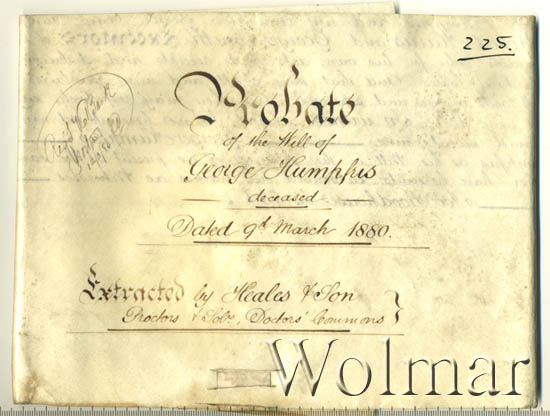 225.
Probate
of the Will of
George Humphris
deceased
Dated 9th March 1880.
Extracted by Heales & Son
Proctors & Solrs, Doctors' Commons
Wolmar